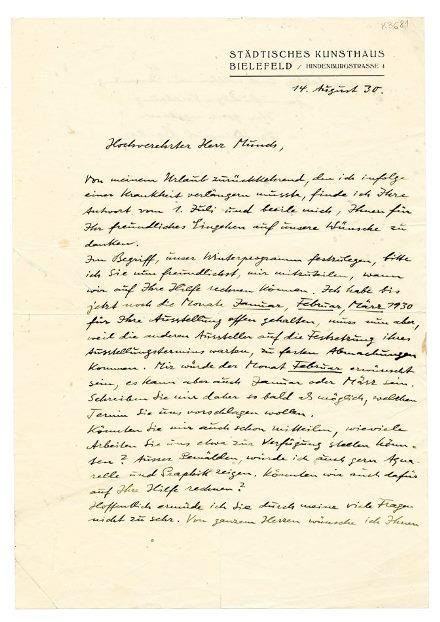 K3681
STÄDTISCHES KUNSTHAUS
BIELEFELD / HINDENBURGSTRASSE
14. August 30.
Hochverehrter Herr Munch,
Von meinem Urlaub zurückkehrend, den ich infolge
einer Krankheit verlängern musste, finde ich Ihre
Antwort vom 1. Juli und beeile mich, Ihnen für
Ihr freundliches Eingehen auf unsere Wünsche zu
danken.
Im Begriff, unser Winterprogramm festzulegen, bitte
ich Sie nun freundlichst, mir mitzuteilen, wann
wir auf Ihre Hilfe rechnen können. Ich habe bis
jetzt noch die Monate Januar, Februar, März 1930
für Ihre Ausstellung offen gehalten, muss nun aber,
weil die anderen Aussteller auf die Festsetzung ihres
Ausstellungstermins warten, zu festen Abmachungen
kommen. Mir würde der Monat Februar erwünscht
sein, es kann aber auch Januar oder März sein.
Schreiben Sie mir daher so bald als möglich, welchen
Termin Sie uns vorschlagen wollen.
Könnten Sie mir auch schon mitteilen, wieviele
Arbeiten Sie uns etwa zur Verfügung stellen könn-
ten? Ausser Gemälden, würde ich auch gern Aqua-
relle und Graphik zeigen. Könnten wir auch dafür
auf Ihre Hilfe rechnen?
Hoffentlich ermüde ich Sie durch meine viele Fragen
nicht zu sehr. Von ganzem Herzen wünsche ich Ihnen